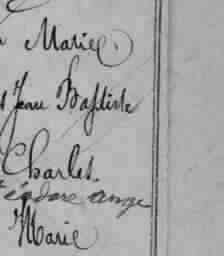 Marie
Jean Baptiste
Charles.
éodore ange
Marie